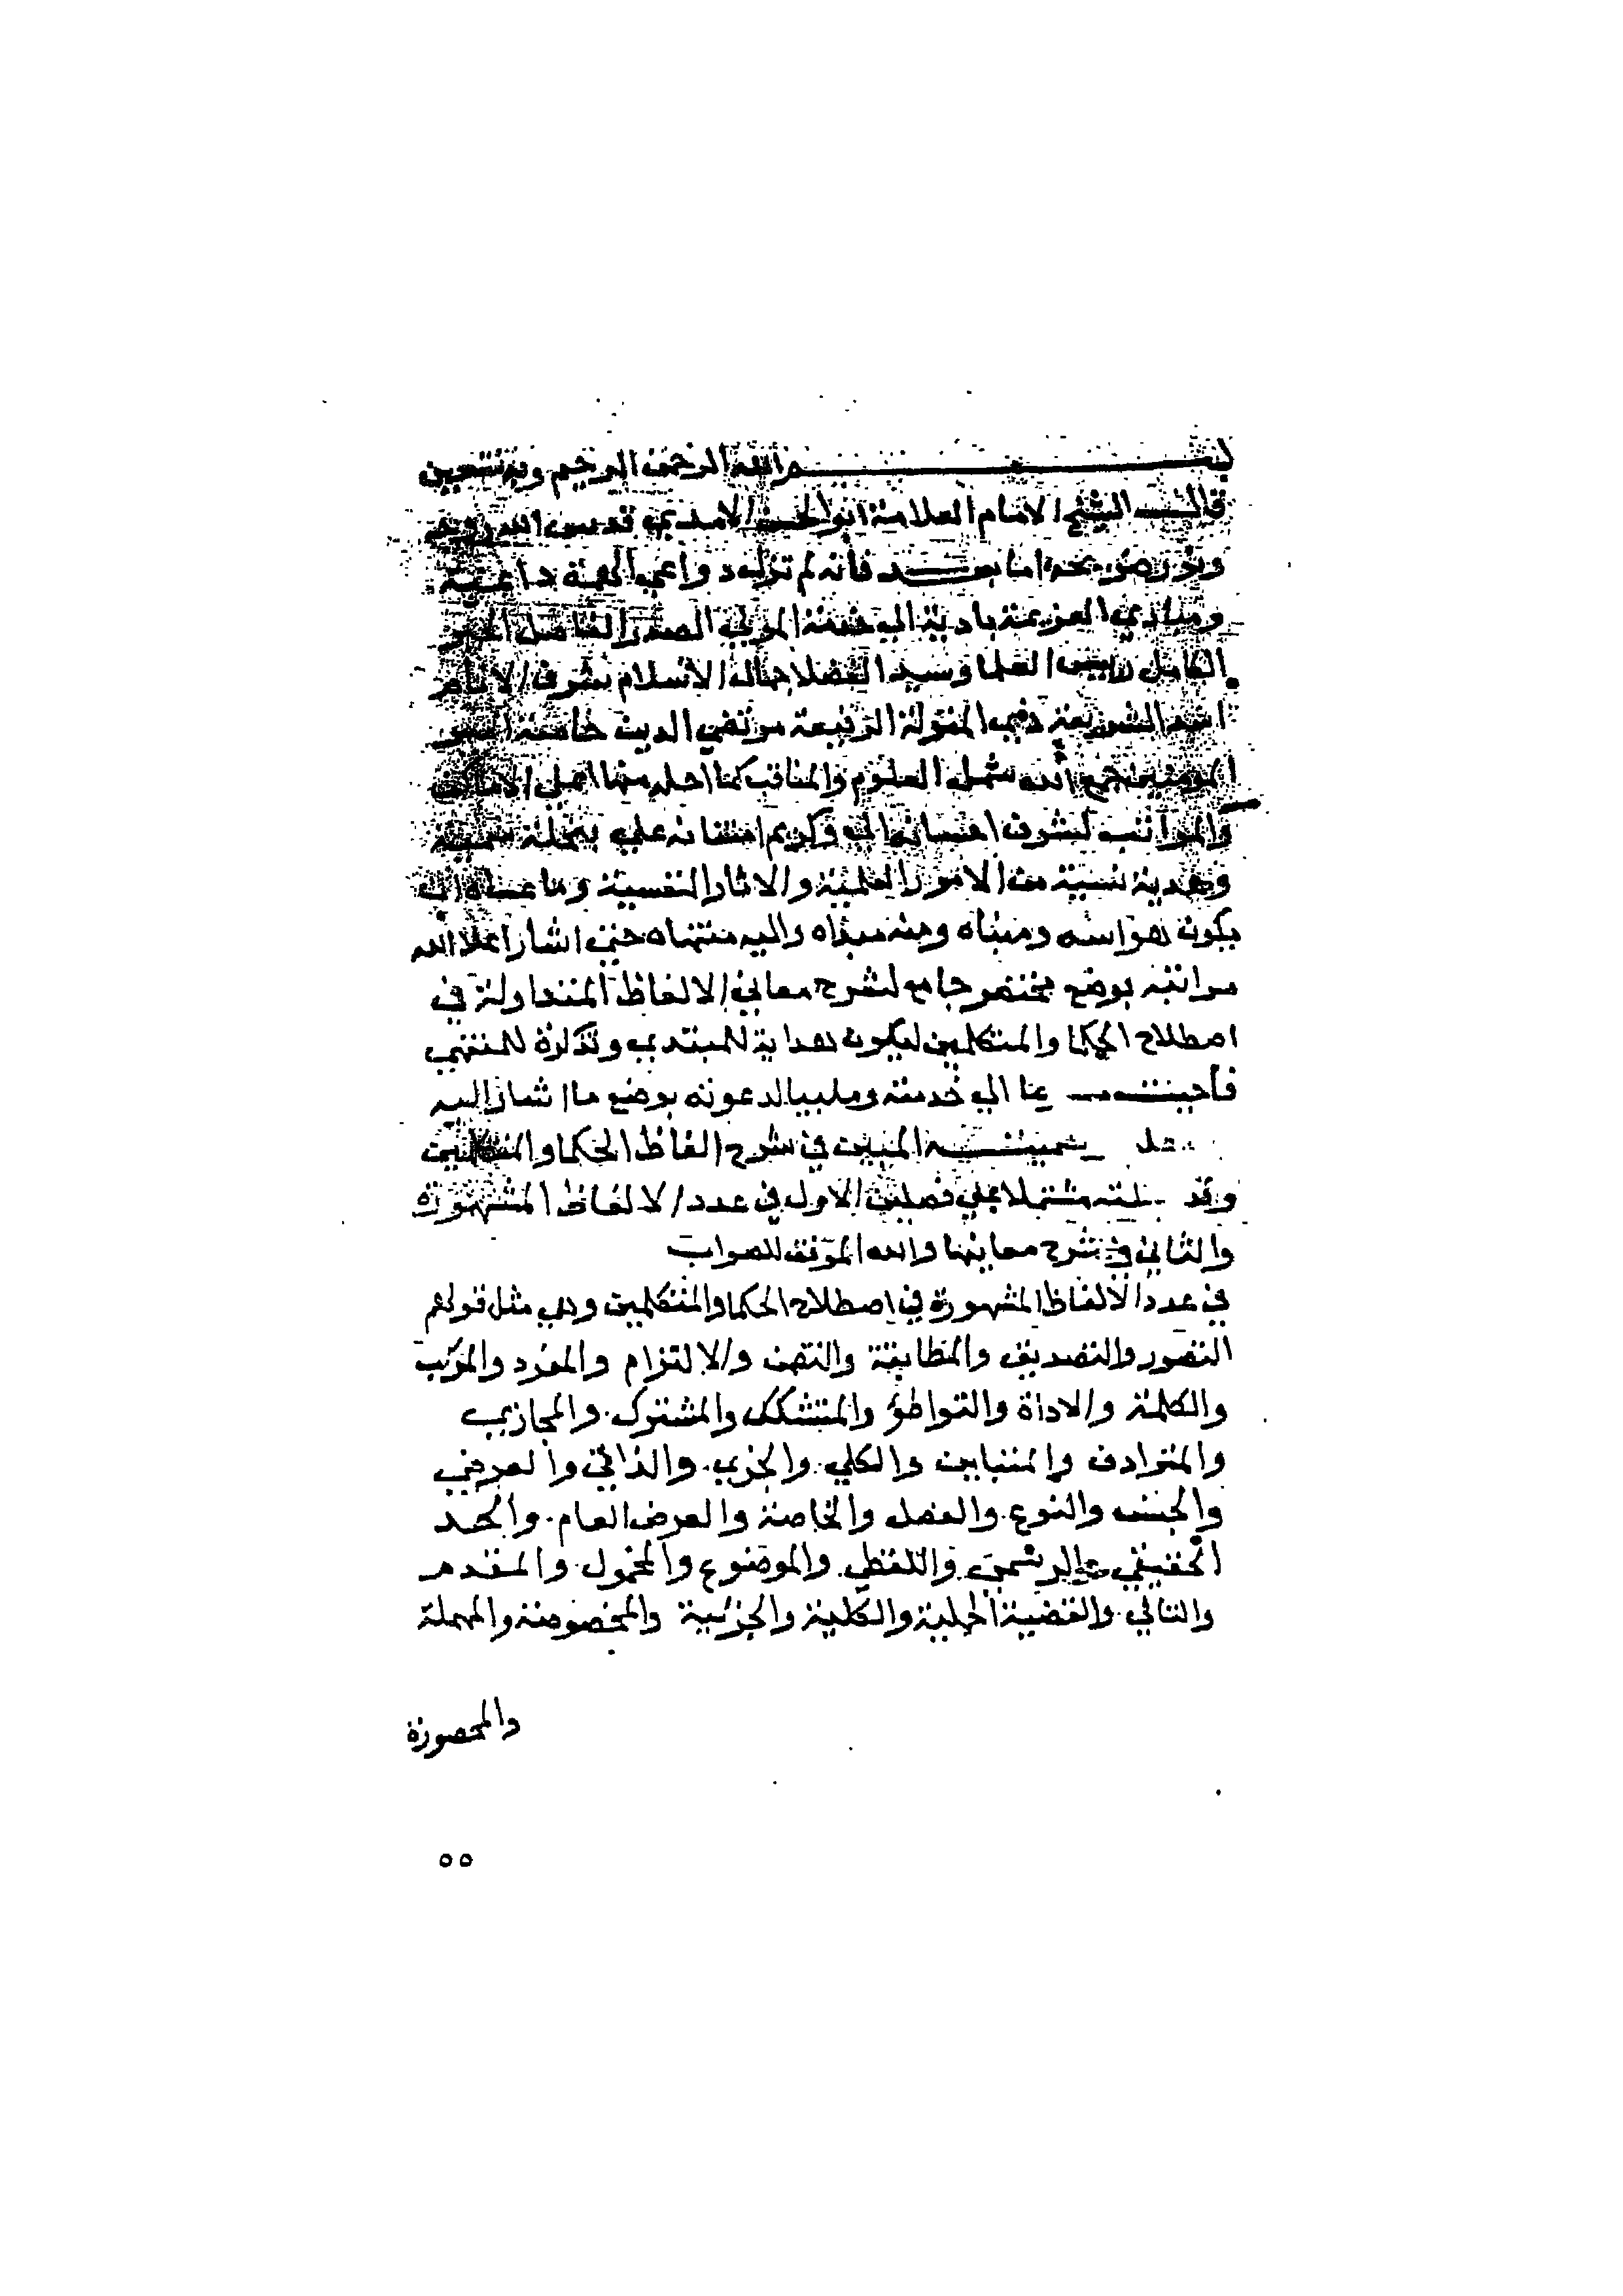 بسم الله الرحمن الرحيم وبه نستعين
قال الشيخ الامام العلامة ابو الحسن الامدي قدس الله روحه
ونور ضريحه اما بعد فانه لم تزل دواعي الهمة داعية
ومبادي العزيمة بادية الي خدمة المولي الصدر الفاضل
الكامل رييس العلما وسيد الفضلا جمال الاسلام شرف الانام
الشريعة ذي المنزلة الرفيعة مرتضي الدين خاصة امير
المومنين جمع الله شمل العلوم والمناقب كما احله منها اعلي الاماكن
والمراتب لشرف احسانه الي وكريم امتنانه علي
وهدية سنية من الامور العلمية والاثار النفسية وما عساه ان
يكون هو اسه ومبناه ومنه مبداه واليه منتهاه حتى اشار اعلا الله
مراتبه بوضع مختصر جامع لشرح معاني الالفاظ المتداولة في
اصطلاح الحكما والمتكلمين ليكون هداية للمبتدي وتذكرة للمنتهي
فاجبته الي خدمته وملبيا لدعوته بوضع ما اشار اليه
سميته المبين في شرح الفاظ الحكما والمتكلمين
وقد مشتملا علي فصلين الاول في عدد الالفاظ المشهورة
والثاني في شرح معانيها والله الموفق للصواب
في عدد الالفاظ المشهورة في اصطلاح الحكما والمتكلمين وهي مثل قولهم
التصور والتصديق والمطابقة والتضمن والالتزام والمفرد والمركب
والكلمة والاداة والتواطؤ والمتشكك والمشترك والمجازي
والمترادف والمتباين والكلي والجزي والذاتي والعرضي
والجنس والنوع والفصل والخاصة والعرض العام والحد
الحقيقي والرسمي واللفظي والموضوع والمحمول والمقدم
والتالي والقضية الحملية والكلية والجزئية والمخصوصة والمهملة
والمحصورة
٥٥